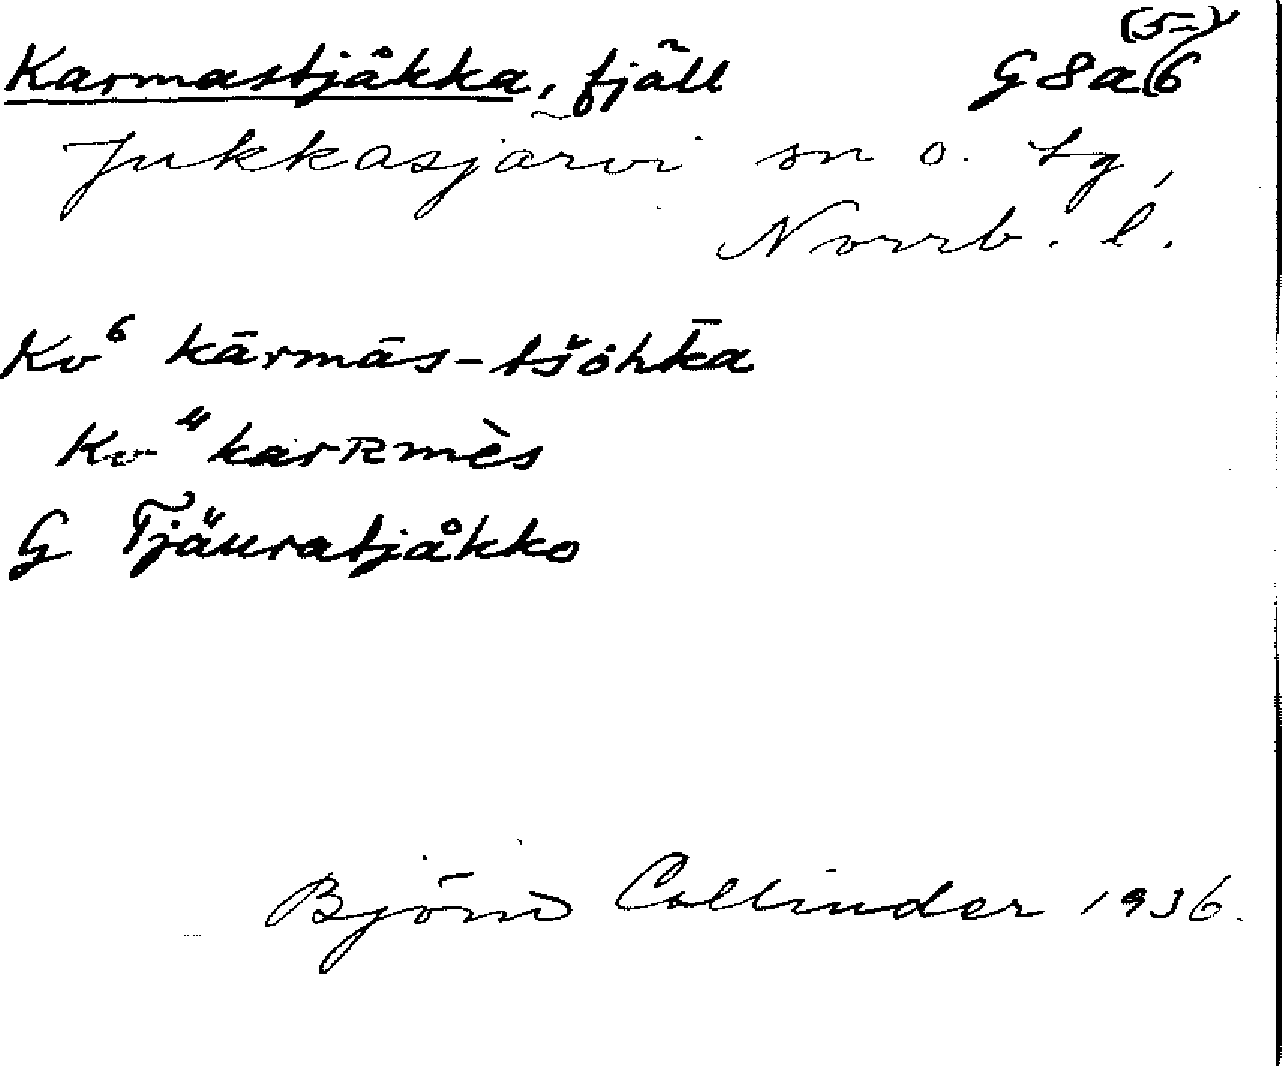 Karmastjåkka, fjäll G8a(6
(5=)
Jukkasjärvi sn o. tg,
Norrb. l.
Kv⁶ kārmās-tšŏhk̄a
Kv" karʀmès
G Tjäuratjåkko
Björn Collinder 1936.